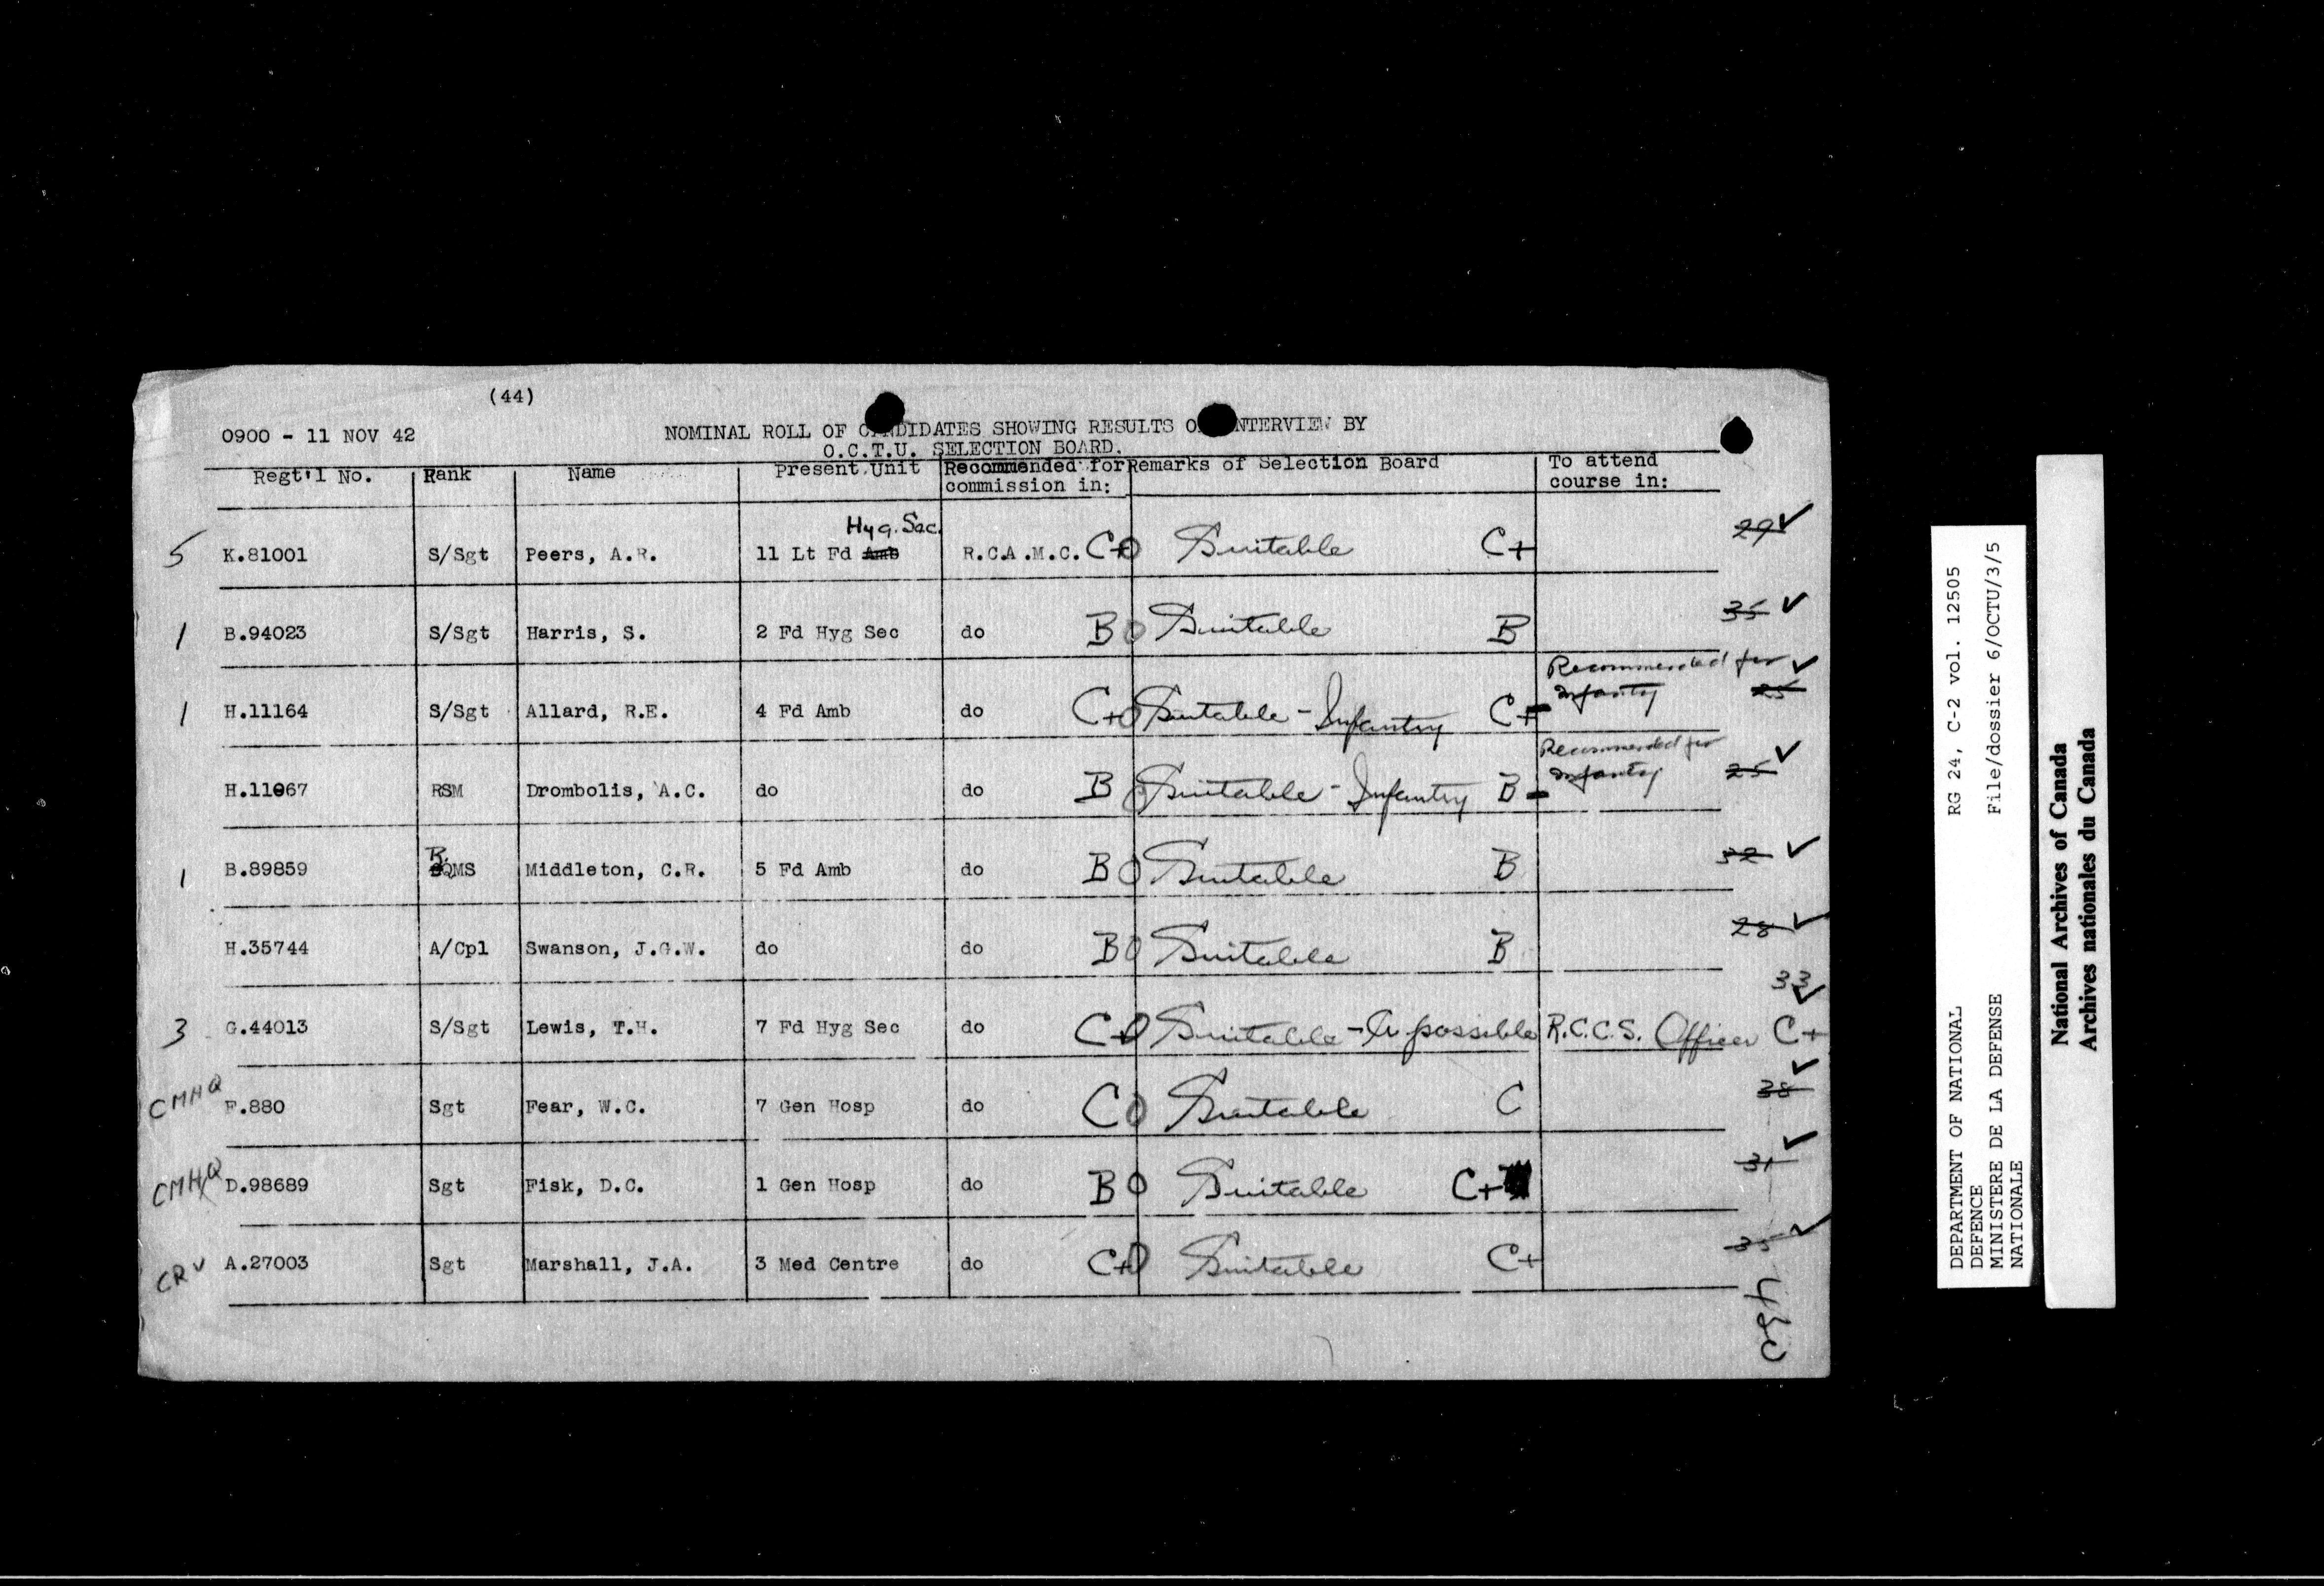 (44)
0900 - 11 NOV 42
NOMINAL ROLL OF CANDIDATES SHOWING RESULTS OF INTERVIEW BY
O.C.T.U. SELECTION BOARD.
Regt'l No. Rank Name Present Unit Recommended for commission in: Remarks of Selection Board To attend course in:
Hyg. Sec.
5 K.81001 S/Sgt Peers, A.R. 11 Lt Fd Amb R.C.A.M.C. C+ O Suitable C+ 29 ✓
1 B.94023 S/Sgt Harris, S. 2 Fd Hyg Sec do B O Suitable B 35 ✓
1 H.11164 S/Sgt Allard, R.E. 4 Fd Amb do C+ O Suitable - Infantry C+ Recommended for Infantry 25 ✓
H.11067 RSM Drombolis, A.C. do do B O Suitable - Infantry B Recommended for Infantry 25 ✓
1 B.89859 QMS Middleton, C.R. 5 Fd Amb do B O Suitable B 32 ✓
H.35744 A/Cpl Swanson, J.G.W. do do B O Suitable B 28 ✓
3 G.44013 S/Sgt Lewis, T.H. 7 Fd Hyg Sec do C+ O Suitable - possible R.C.C.S. Officer C+ 33 ✓
CMHQ F.880 Sgt Fear, W.C. 7 Gen Hosp do C O Suitable C 38 ✓
CMHQ D.98689 Sgt Fisk, D.C. 1 Gen Hosp do B O Suitable C+ 31 ✓
CRV A.27003 Sgt Marshall, J.A. 3 Med Centre do C+ O Suitable C+ 35 ✓
DEPARTMENT OF NATIONAL
DEFENCE
MINISTERE DE LA DEFENSE
NATIONALE
RG 24, C-2 vol. 12505
File/dossier 6/OCTU/3/5
National Archives of Canada
Archives nationales du Canada